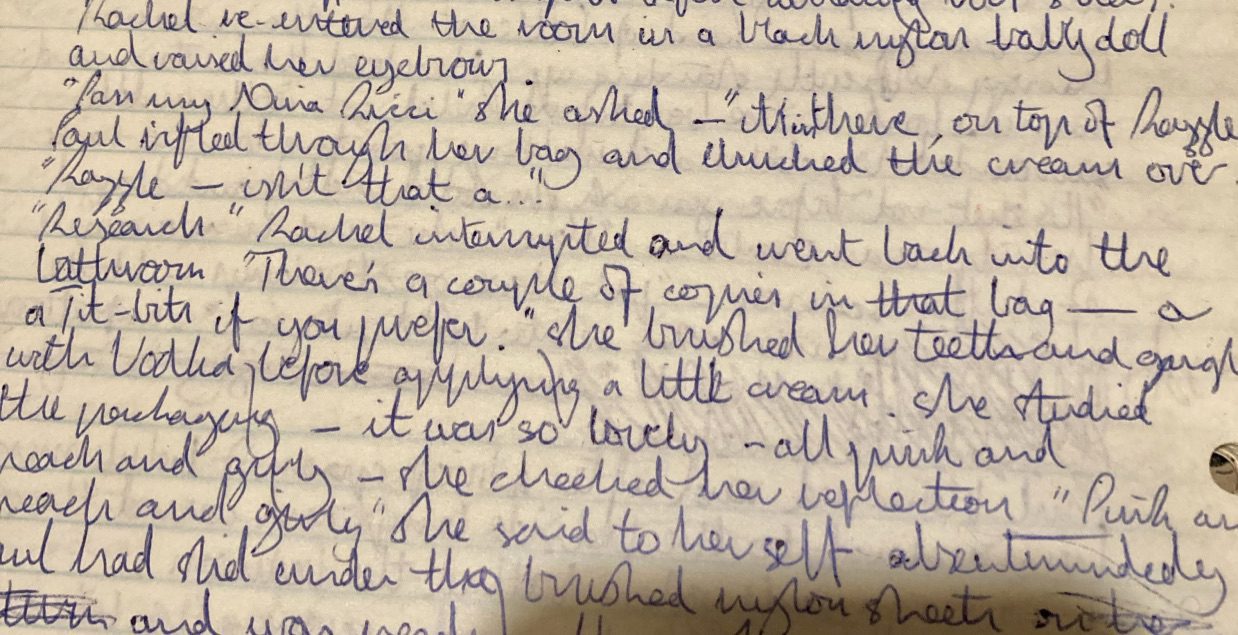 Rachel re-entered the room in a black nylon baby doll
and raised her eyebrows.
"Pass my Nina Ricci" she asked – "It's in there, on top of Razzle
Paul rifled through her bag and chucked the cream over.
"Razzle – isn't that a..."
"Research" Rachel interrupted and went back into the
bathroom "There's a couple of copies in that bag — a
a Tit-bits if you prefer." She brushed her teeth and
with Vodka, before applying a little cream. She studied
the packaging – it was so lovely – all pink and
peach and girly – she checked her reflection "Pink
peach and girly" she said to herself absentmindedly
had slid under the brushed nylon sheets
and was